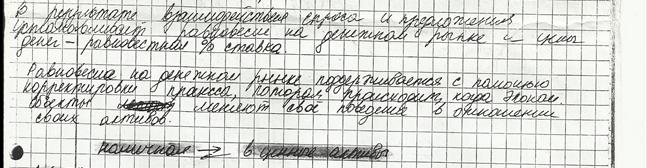 В результате взаимодействия спроса и предложения
устанавливает равновесие на денежном рынке и цены
денег – равновестная % ставка.
Равновесие на денежном рынке поддерживается с помощью
корректировки процесса, которая происходит, когда эконом.
объекты меняют своё поведение в отношении
своих активов.
наличная → в ценные активы